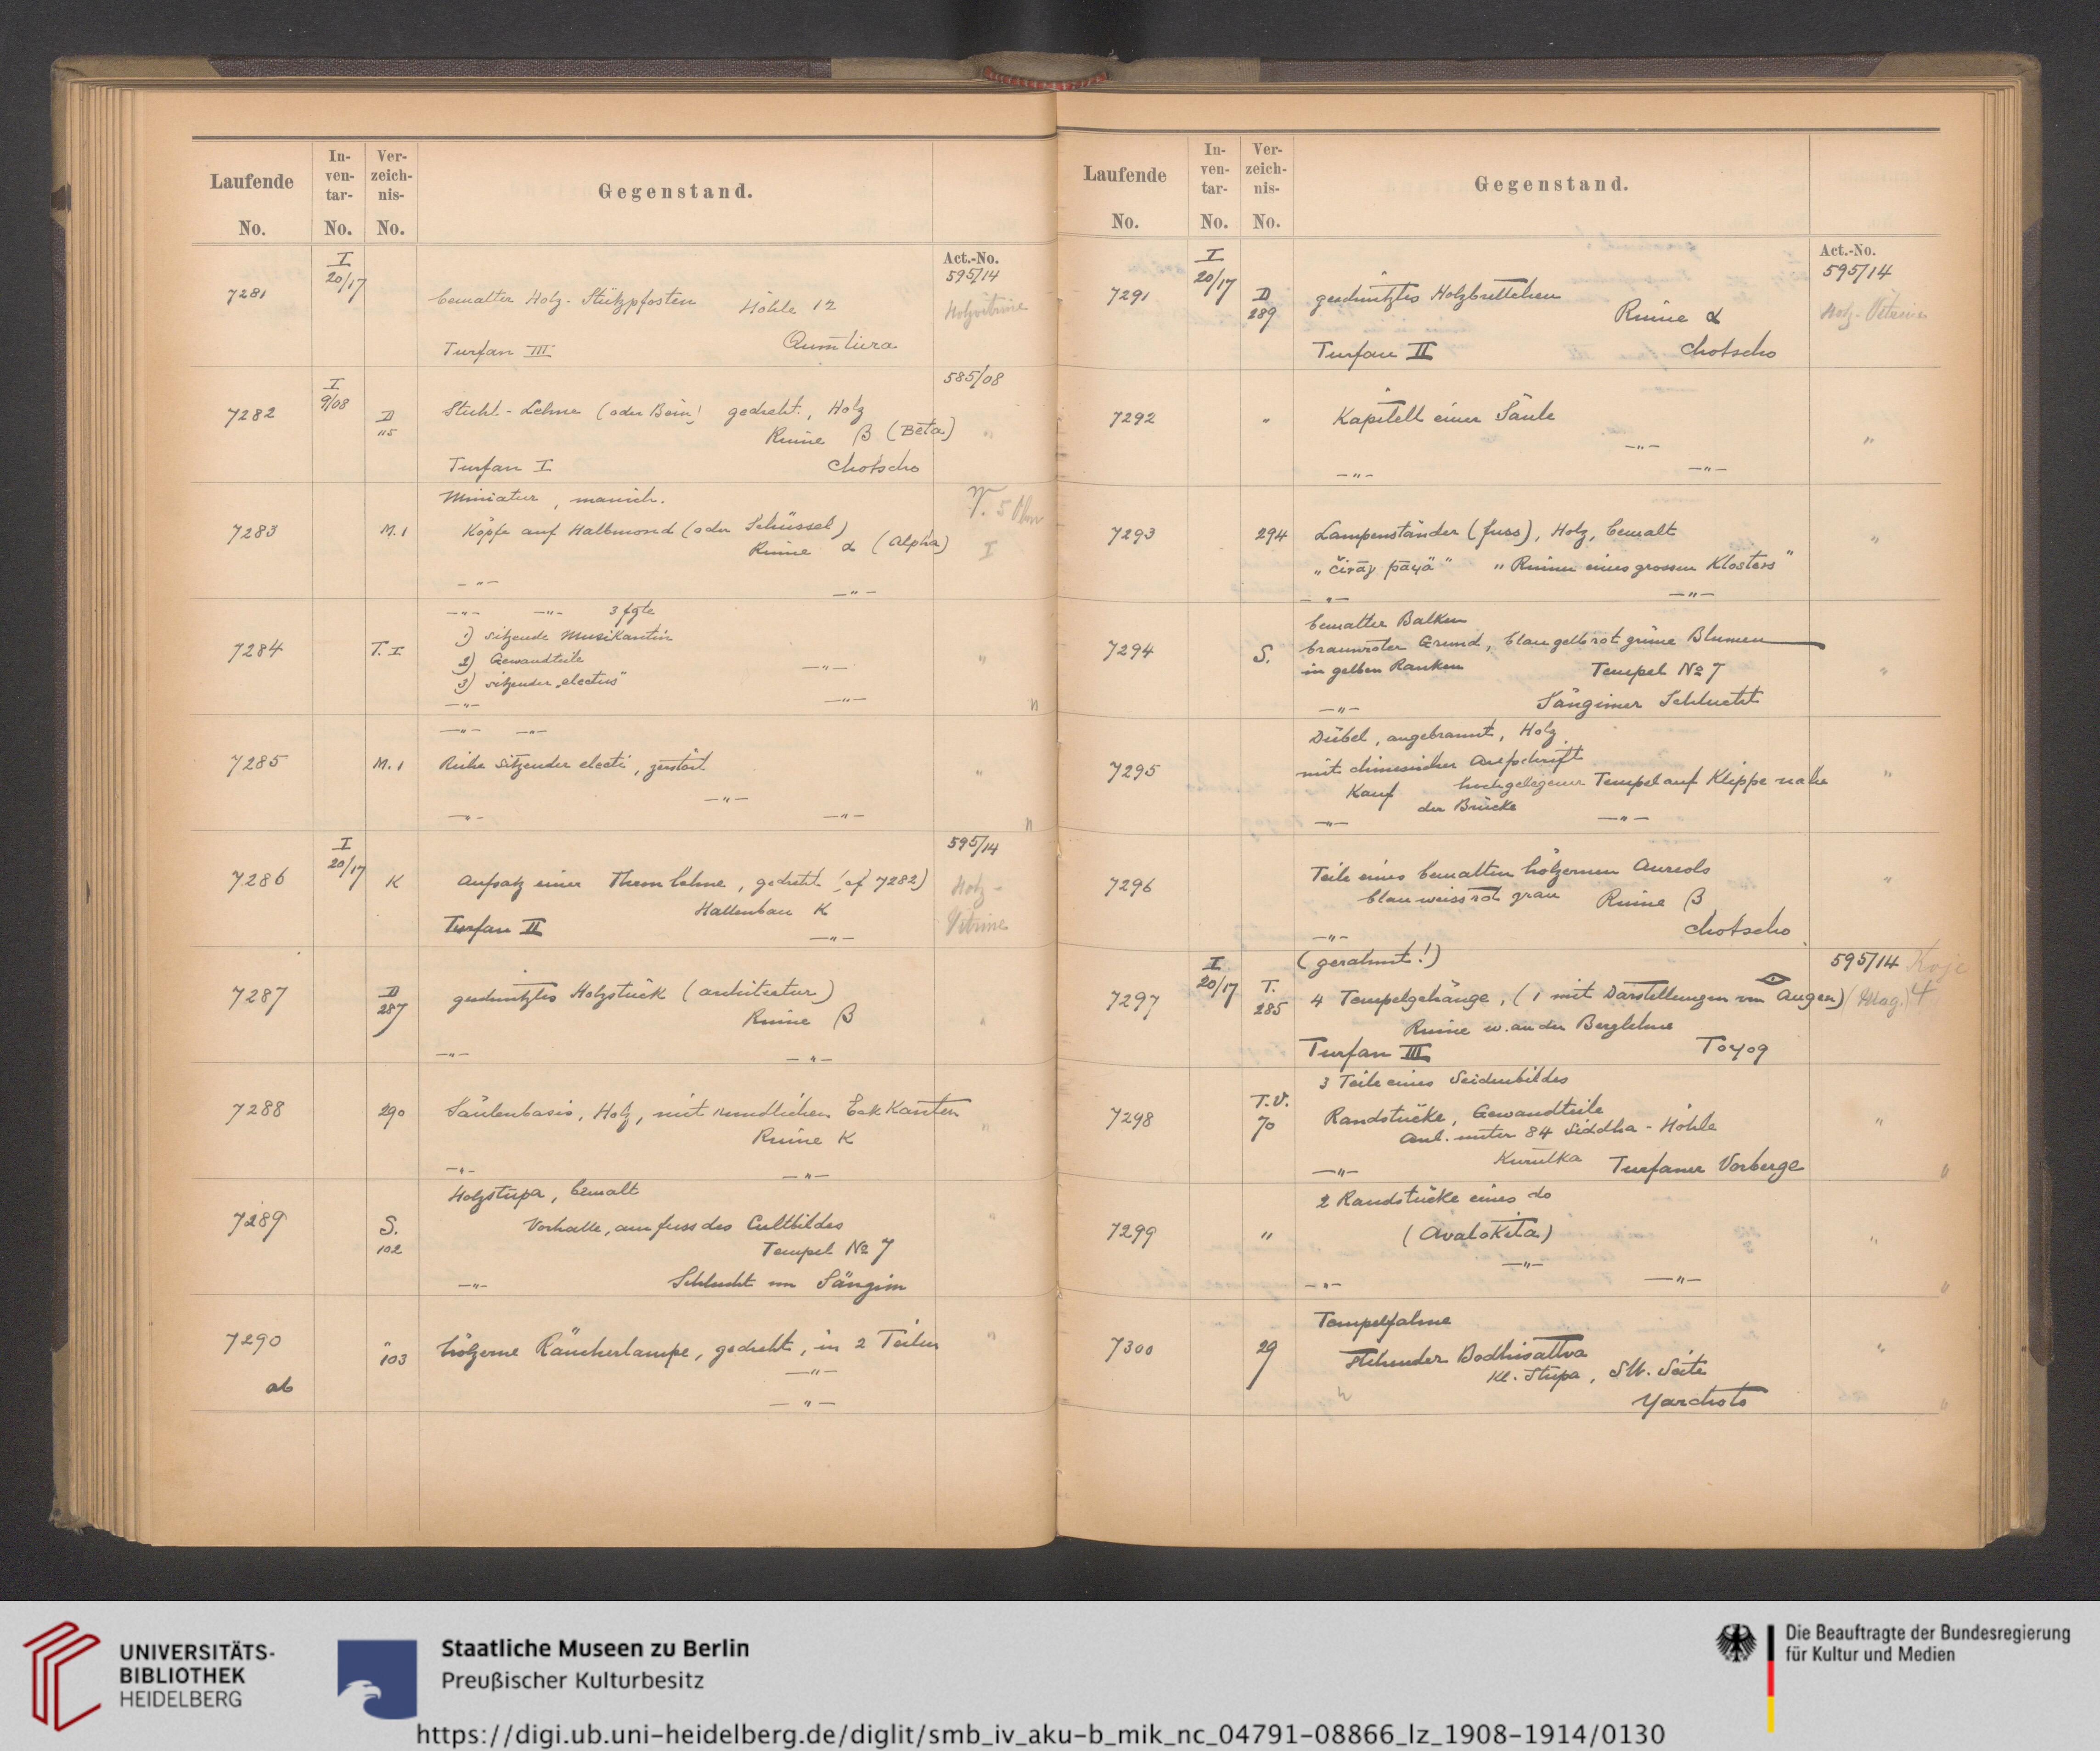 Laufende No.
In-ven-tar- No.
Ver-zeich-nis- No.
Gegenstand.
Act.-No.
7281
I 20/17
bemalter Holz-Stützpfosten Höhle 12
Turfan III Qumtura
595/14
Holzvitrine
7282
I 9/08
D 115
Stuhl-Lehne (oder Bein! gedreht, Holz
Ruine β (Beta)
Turfan I Chotscho
585/08
"
7283
M. 1
Miniatur, manich.
Köpfe auf Halbmond (oder Schüssel)
Ruine α (Alpha)
—"— —"—
I
7284
T. I
—"— —"— 3 fgte
1) sitzende Musikantin
2) Gewandteile —"—
3) sitzender „electus"
—"— —"—
"
"
7285
M. 1
—"— —"—
Reihe sitzender electi, zerstört
—"—
—"— —"—
"
"
7286
I 20/17
K
Aufsatz einer Thronlehne, gedreht (cf 7282)
Hallenbau K
Turfan II —"—
595/14
Holz-
Vitrine
7287
D 287
geschnitztes Holzstück (architectur)
Ruine β
—"— —"—
"
7288
290
Säulenbasis, Holz, mit rundlichen Eck Kanten
Ruine K
—"— —"—
"
7289
S. 102
Holzstūpa, bemalt
Vorhalle, am fuss des Cultbildes
Tempel No 7
—"— Schlucht von Sängim
"
7290
ab
" 103
hölzerne Räucherlampe, gedreht, in 2 Teilen
—"—
—"—
"
Laufende No.
In-ven-tar- No.
Ver-zeich-nis- No.
Gegenstand.
Act.-No.
7291
I 20/17
D 289
geschnitztes Holzbrettchen
Ruine α
Turfan II Chotscho
595/14
Holz-Vitrine
7292
"
Kapitell einer Säule
—"—
—"— —"—
"
7293
294
Lampenständer (fuss), Holz, bemalt
„čirāγ pāyä" „Ruinen eines grossen Klosters"
—"— —"—
"
7294
S.
bemalter Balken
braunroter Grund, blau gelb rot grüne Blumen
in gelben Ranken Tempel No 7
—"— Sängimer Schlucht
"
7295
Dübel, angebrannt, Holz
mit chinesischer Aufschrift
Kauf hochgelegener Tempel auf Klippe nahe
der Brücke
—"— —"—
"
7296
Teile eines bemalten hölzernen Aureols
blau weiss rot grau Ruine β
—"— Chotscho
"
7297
I 20/17
T. 285
(gerahmt!)
4 Tempelgehänge, (1 mit Darstellungen von Augen) (Mag.)
Ruine w. an der Berglehne
Turfan III Toyoq
595/14 Koje 4
7298
T.V. 70
3 Teile eines Seidenbildes
Randstücke, Gewandteile
Anl. unter 84 Siddha-Höhle
—"— Kurutka Turfaner Vorberge
"
"
7299
"
2 Randstücke eines do
(Avalokita)
—"—
—"— —"—
"
"
7300
29
Tempelfahne
stehender Bodhisattva
Kl. Stūpa, SW. Seite
Yarchoto
"
"
UNIVERSITÄTS-
BIBLIOTHEK
HEIDELBERG
Staatliche Museen zu Berlin
Preußischer Kulturbesitz
Die Beauftragte der Bundesregierung
für Kultur und Medien
https://digi.ub.uni-heidelberg.de/diglit/smb_iv_aku-b_mik_nc_04791-08866_lz_1908-1914/0130